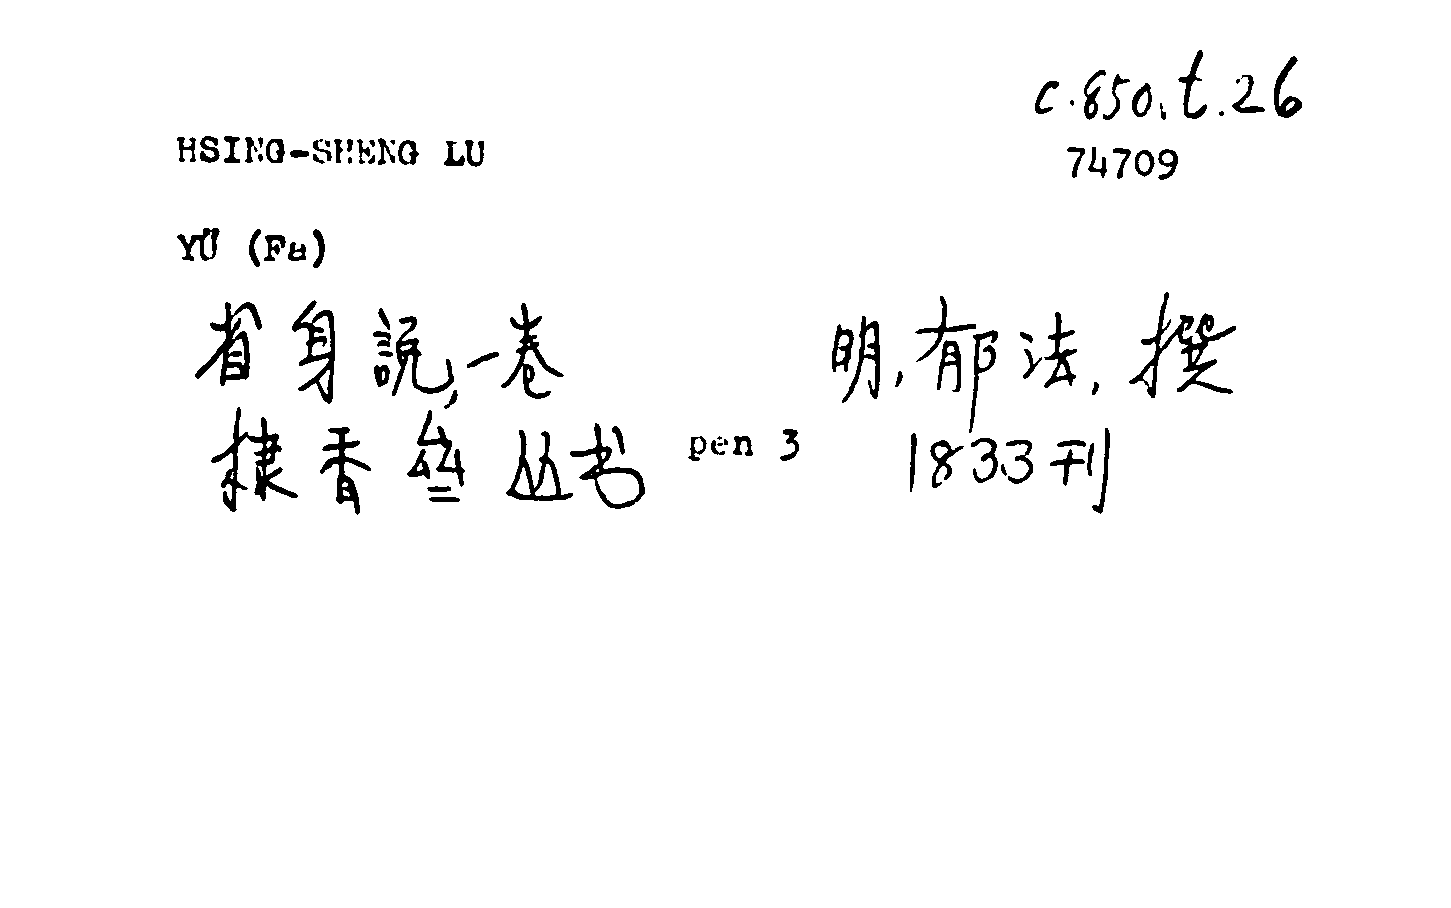 c.850.t.26
HSING-SHENG LU 74709
YÜ (Fa)
省身說,一卷 明,郁法,撰
棣香叄丛书 pen 3 1833刊